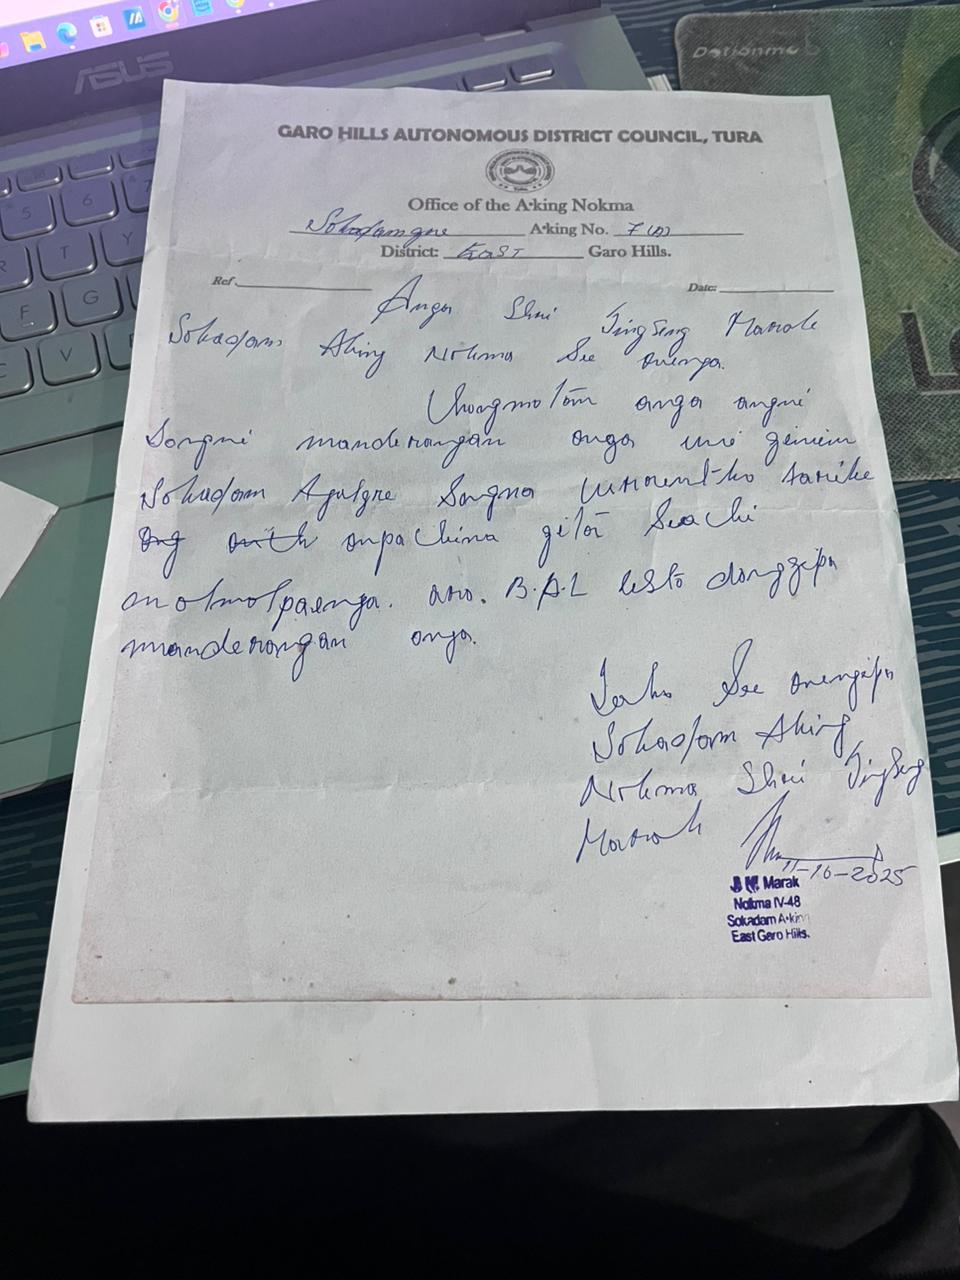 ASUS
GARO HILLS AUTONOMOUS DISTRICT COUNCIL, TURA
Office of the A·king Nokma
Sokadamgre A·king No. 7(A)
District: EAST Garo Hills.
Ref. Date:
Anga Shri Jingseng Marak
Sokadam Aking Nokma See onenga.
Chongmotan anga angni
Songni manderangan onga uni gimin
Sokadam Agalgre Songna current-ko tarike
onpachina gita Seachi
on·molmolpaenga. aro. B.P.L listo donggipa
manderangan onga.
Iako See onengipa
Sokadam Aking
Nokma Shri Jingseng
Marak
11-10-2025
J Marak
Nokma IV-48
Sokadam A·king
East Garo Hills.